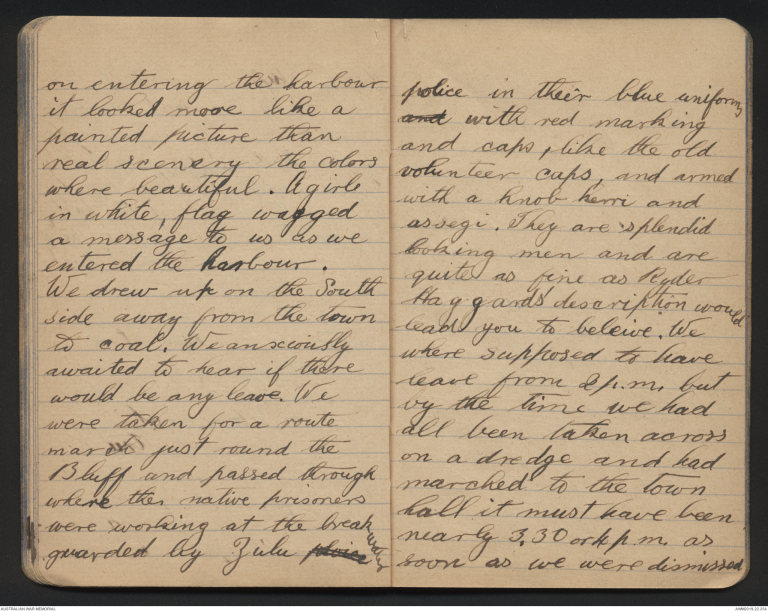 on entering the harbour
it looked more like a
painted picture than
real scenery the colors
where beautiful. A girl
in white, flag wagged
a message to us as we
entered the harbour.
We drew up on the South
side away from the town
to coal. We anxciously
awaited to hear if there
would be any leave. We
were taken for a route
march just round the
Bluff and passed through
where the native prisoners
were working at the break water
guarded by Zulu ploice
police in their blue uniforms
and with red marking
and caps, like the old
volunteer caps, and armed
with a knob kerri and
assegi. They are splendid
looking men and are
quite as fine as Ryder
Haggards' description would
lead you to beleive. We
where supposed to have
leave from 2 p.m. but
by the time we had
all been taken across
on a dredge and had
marched to the town
hall it must have been
nearly 3.30 or 4 p.m. as
soon as we were dismissed
AUSTRALIAN WAR MEMORIAL